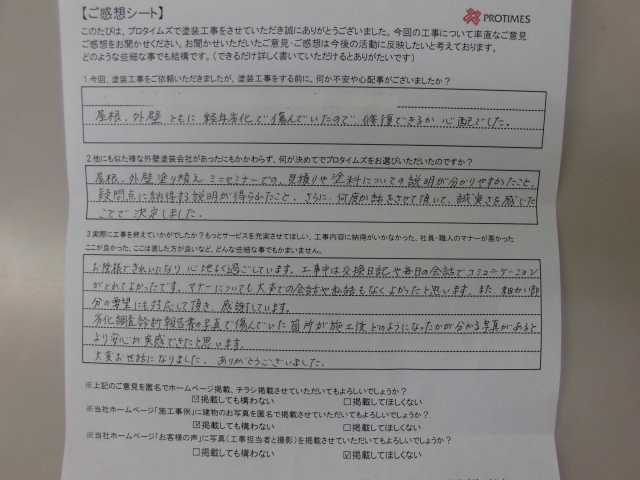 【ご感想シート】
PROTIMES
このたびは、プロタイムズで塗装工事をさせていただき誠にありがとうございました。今回の工事について率直なご意見
ご感想をお聞かせください。お聞かせいただいたご意見・ご感想は今後の活動に反映したいと考えております。
どのような些細な事でも結構です。（できるだけ詳しく書いていただけるとありがたいです）
1.今回、塗装工事をご依頼いただきましたが、塗装工事をする前に、何か不安や心配事がございましたか？
屋根、外壁ともに経年劣化で傷んでいたので修復できるか心配でした。
2.他にも似た様な外壁塗装会社があったにもかかわらず、何が決めてでプロタイムズをお選びいただいたのですか？
屋根、外壁塗り替えミニセミナーでの、見積りや塗料についての説明が分かりやすかったこと、
疑問点に納得する説明が得られたこと、さらに、何度か話をさせて頂いて、誠実さを感じた
ことで決定しました。
3.実際に工事を終えていかがでしたか？もっとサービスを充実させてほしい、工事内容に納得がいかなかった、社員・職人のマナーが悪かった
ここが良かった、ここは直した方が良いなど、どんな些細な事でもかまいません。
お陰様できれいになり心地よく過ごしています。工事中は交換日記や毎日の会話でコミュニケーション
がとれてよかったです。マナーについても大声での会話や私語もなくよかったと思います。また、細かい部
分の要望にも対応して頂き、感謝しています。
劣化調査診断報告書の写真で傷んでいた箇所が施工後どのようになったかが分かる写真があると
より安心が実感できたと思います。
大変お世話になりました。ありがとうございました。
※上記のご意見を匿名でホームページ掲載、チラシ掲載させていただいてもよろしいでしょうか？
☑掲載しても構わない □掲載してほしくない
※当社ホームページ「施工事例」に建物のお写真を匿名で掲載させていただいてもよろしいでしょうか？
☑掲載しても構わない □掲載してほしくない
※当社ホームページ「お客様の声」に写真（工事担当者と撮影）を掲載させていただいてもよろしいでしょうか？
□掲載しても構わない ☑掲載してほしくない